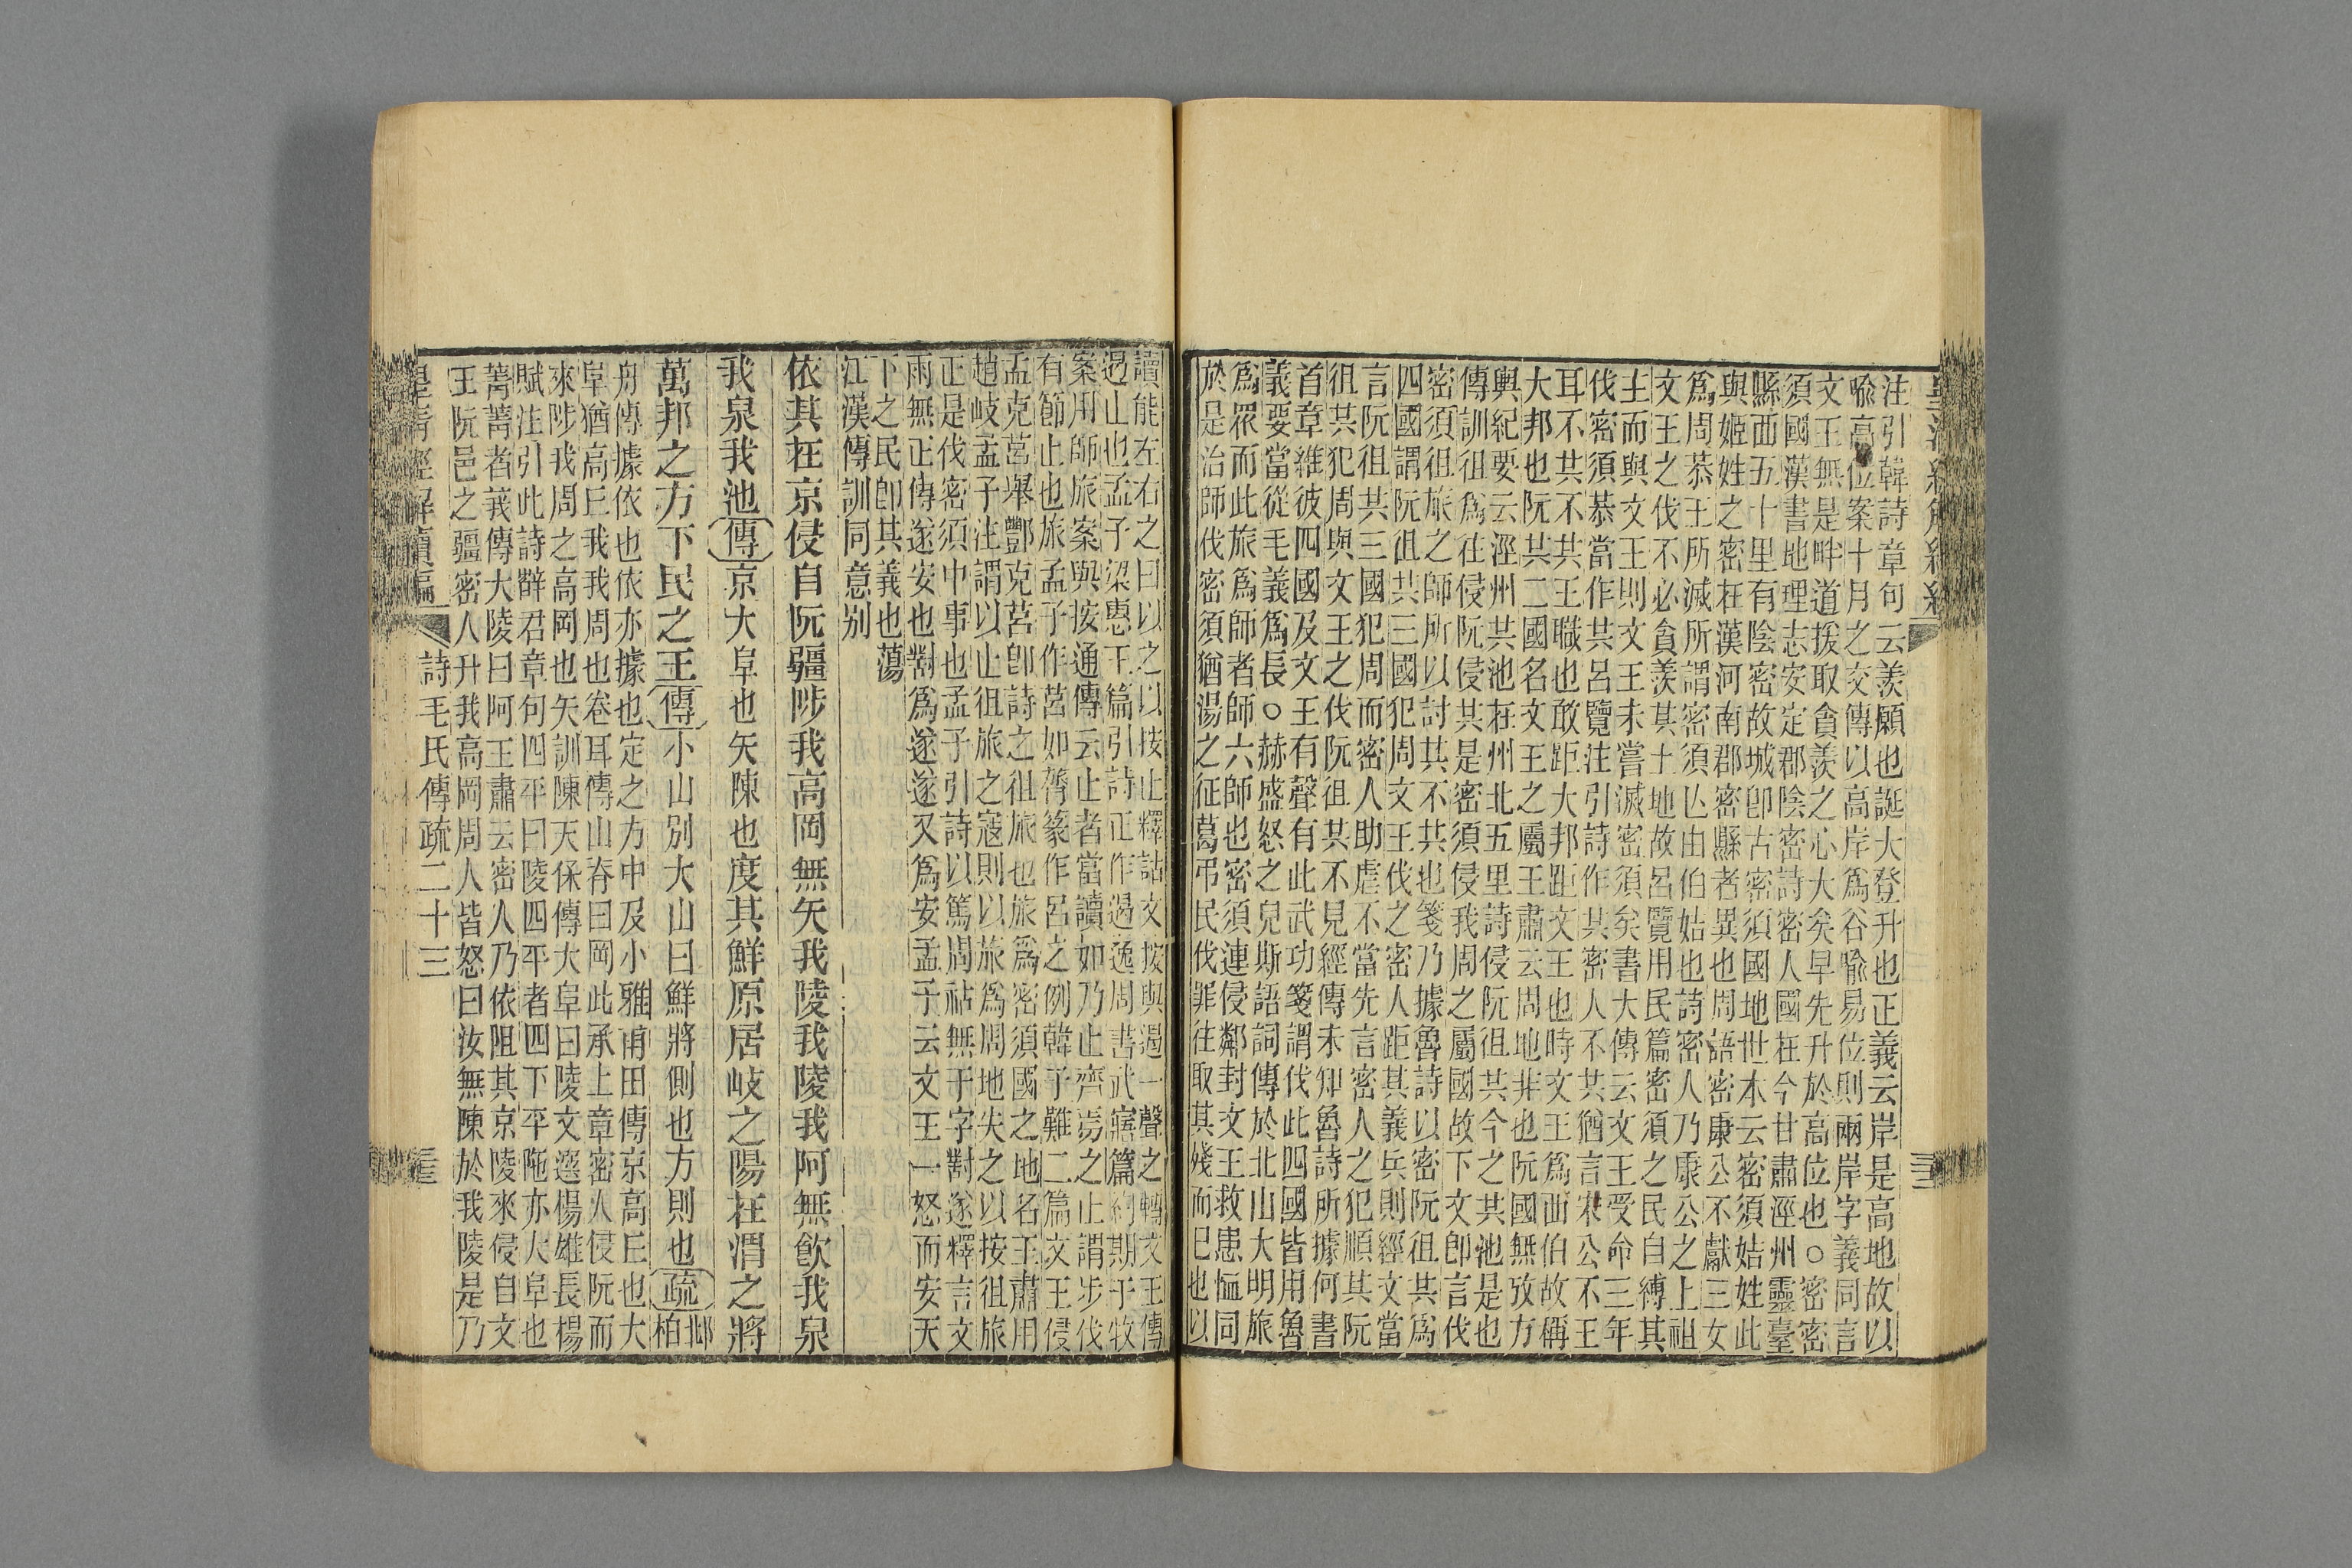 注引韓詩章句云羨願也誕大登升也正義云岸是高地故以
喻高位案十月之交傳以高岸爲谷喻易位則兩岸字義同言
文王無是畔道援取貪羨之心大矣早先升於高位也○密密
須國漢書地理志安定郡陰密詩密人國在今甘肅涇州靈臺
縣西五十里有陰密故城卽古密須國地世本云密須姞姓此
與姬姓之密在漢河南郡密縣者異也周語密康公不獻三女
爲周恭王所滅所謂密須亾由伯姞也詩密人乃康公之上祖
文王之伐不必貪羨其土地故呂覽用民篇密須之民自縛其
主而與文王則文王未嘗滅密須矣書大傳云文王受命三年
伐密須恭當作共呂覽注引詩作其密人不共猶言宋公不王
耳不共不共王職也敢距大邦距文王也時文王爲西伯故稱
大邦也阮共二國名文王之屬王肅云周地非也阮國無攷方
輿紀要云涇州共池在州北五里詩侵阮徂共今之共池是也
傳訓徂爲往侵阮侵其是密須侵我周之屬國故下文卽言伐
密須徂旅之師所以討其不共也箋乃據魯詩以密阮徂共爲
四國謂阮徂共三國犯周文王伐之密人距其義兵則經文當
言阮徂共三國犯周而密人助虐不當先言密人之犯順其阮
徂共犯周與文王之伐阮徂共不見經傳未知魯詩所據何書
首章維彼四國及文王有聲有此武功箋謂伐此四國皆用魯
義要當從毛義爲長○赫盛怒之皃斯語詞傳於北山大明旅
爲眾而此旅爲師者師六師也密須連侵鄰封文王救患恤同
於是治師伐密須猶湯之征葛弔民伐罪往取其殘而已也以
讀能左右之曰以之以按止釋詁文按與遏一聲之轉文王傳
遏止也孟子梁惠王篇引詩正作遏逸周書武寤篇約期于牧
案用師旅案與按通傳云止者當讀如乃止齊焉之止謂步伐
有節止也旅孟子作莒如膂篆作呂之例韓子難二篇文王侵
孟克莒舉酆克莒卽詩之徂旅也旅爲密須國之地名王肅用
趙岐孟子注謂以止徂旅之寇則以旅爲周地失之以按徂旅
正是伐密須中事也孟子引詩以篤周祜無于字對遂釋言文
雨無正傳遂安也對爲遂遂又爲安孟子云文王一怒而安天
下之民卽其義也蕩
江漢傳訓同意別
依其在京侵自阮疆陟我高岡無矢我陵我陵我阿無飲我泉
我泉我池傳京大阜也矢陳也度其鮮原居岐之陽在渭之將
萬邦之方下民之王傳小山別大山曰鮮將側也方則也疏邶柏
舟傳據依也依亦據也定之方中及小雅甫田傳京高丘也大
阜猶高丘我我周也卷耳傳山脊曰岡此承上章密人侵阮而
來陟我周之高岡也矢訓陳天保傳大阜曰陵文選楊雄長楊
賦注引此詩辥君章句四平曰陵四平者四下平陁亦大阜也
菁菁者莪傳大陵曰阿王肅云密人乃依阻其京陵來侵自文
王阮邑之疆密人升我高岡周人皆怒曰汝無陳於我陵是乃
詩毛氏傳疏二十三